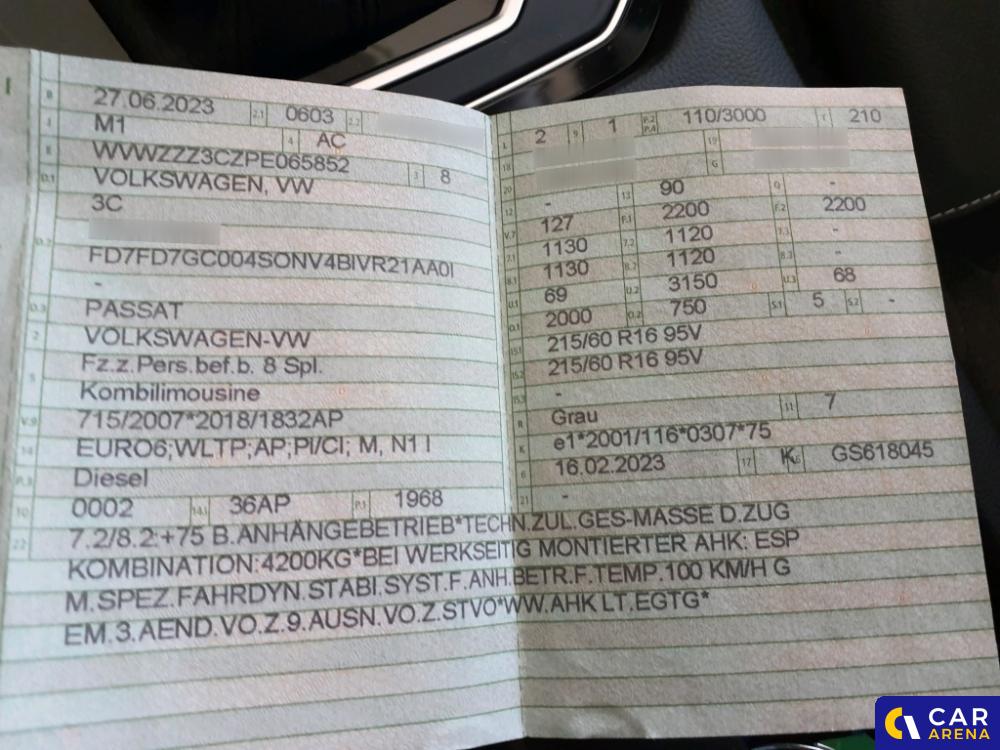 B 27.06.2023 2.1 0603 2.2
J M1 4 AC
E WVWZZZ3CZPE065852 3 8
D.1 VOLKSWAGEN, VW
3C
D.2
FD7FD7GC004SONV4BIVR21AA0I
-
D.3 PASSAT
2 VOLKSWAGEN-VW
5 Fz.z.Pers.bef.b. 8 Spl.
Kombilimousine
V.9 715/2007*2018/1832AP
14 EURO6;WLTP;AP;PI/CI; M, N1 I
P.3 Diesel
10 0002 14.1 36AP P.1 1968
22 7.2/8.2:+75 B.ANHÄNGEBETRIEB*TECHN.ZUL.GES-MASSE D.ZUG
KOMBINATION:4200KG*BEI WERKSEITIG MONTIERTER AHK: ESP
M.SPEZ.FAHRDYN.STABI.SYST.F.ANH.BETR.F.TEMP.100 KM/H G
EM.3.AEND.VO.Z.9.AUSN.VO.Z.STVO*WW.AHK LT.EGTG*
L 2 9 1 P.2 P.4 110/3000 T 210
18 19
20 G
12 - 13 90 Q -
V.7 127 F.1 2200 F.2 2200
7.1 1130 7.2 1120 7.3 -
8.1 1130 8.2 1120 8.3 -
U.1 69 U.2 3150 U.3 68
O.1 2000 O.2 750 S.1 5 S.2 -
15.1 215/60 R16 95V
15.2 215/60 R16 95V
15.3 -
R Grau 11 7
K e1*2001/116*0307*75
6 16.02.2023 17 K 16 GS618045
21 -
CAR
ARENA